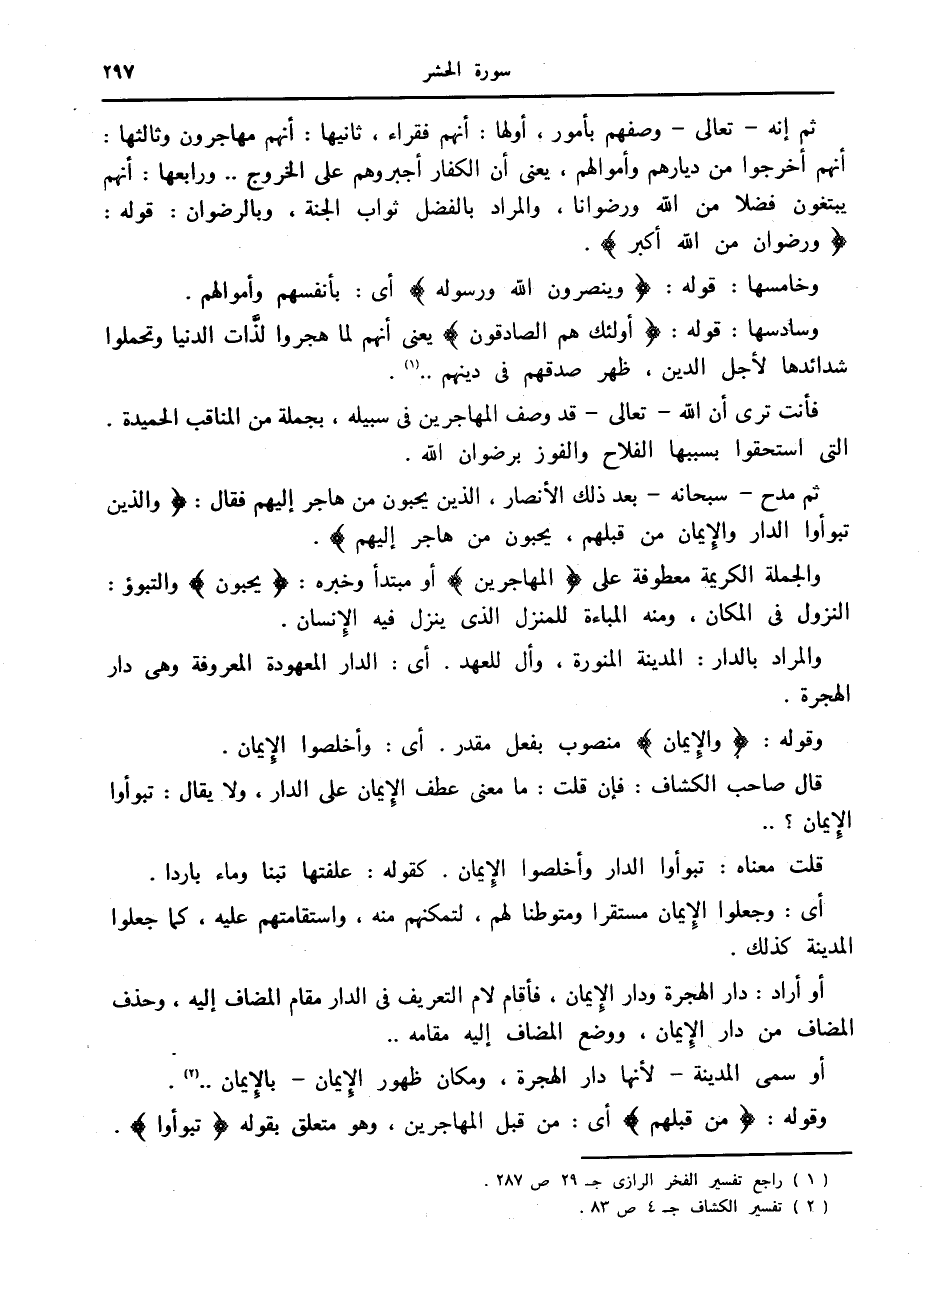 سورة الحشر ٢٩٧
ثم إنه - تعالى - وصفهم بأمور ، أولها : أنهم فقراء ، ثانيها : أنهم مهاجرون وثالثها :
أنهم أخرجوا من ديارهم وأموالهم ، يعنى أن الكفار أجبروهم على الخروج .. ورابعها : أنهم
يبتغون فضلا من الله ورضوانا ، والمراد بالفضل ثواب الجنة ، وبالرضوان : قوله :
﴿ ورضوان من الله أكبر ﴾ .
وخامسها : قوله : ﴿ وينصرون الله ورسوله ﴾ أى : بأنفسهم وأموالهم .
وسادسها : قوله : ﴿ أولئك هم الصادقون ﴾ يعنى أنهم لما هجروا لذَّات الدنيا وتحملوا
شدائدها لأجل الدين ، ظهر صدقهم فى دينهم ..(١) .
فأنت ترى أن الله - تعالى - قد وصف المهاجرين فى سبيله ، بجملة من المناقب الحميدة .
التى استحقوا بسببها الفلاح والفوز برضوان الله .
ثم مدح - سبحانه - بعد ذلك الأنصار ، الذين يحبون من هاجر إليهم فقال : ﴿ والذين
تبوأوا الدار والإيمان من قبلهم ، يحبون من هاجر إليهم ﴾ .
والجملة الكريمة معطوفة على ﴿ المهاجرين ﴾ أو مبتدأ وخبره : ﴿ يحبون ﴾ والتبوؤ :
النزول فى المكان ، ومنه المباءة للمنزل الذى ينزل فيه الإنسان .
والمراد بالدار : المدينة المنورة ، وأل للعهد . أى : الدار المعهودة المعروفة وهى دار
الهجرة .
وقوله : ﴿ والإيمان ﴾ منصوب بفعل مقدر . أى : وأخلصوا الإيمان .
قال صاحب الكشاف : فإن قلت : ما معنى عطف الإيمان على الدار ، ولا يقال : تبوأوا
الإيمان ؟ ..
قلت معناه : تبوأوا الدار وأخلصوا الإيمان . كقوله : علفتها تبنا وماء باردا .
أى : وجعلوا الإيمان مستقرا ومتوطنا لهم ، لتمكنهم منه ، واستقامتهم عليه ، كما جعلوا
المدينة كذلك .
أو أراد : دار الهجرة ودار الإيمان ، فأقام لام التعريف فى الدار مقام المضاف إليه ، وحذف
المضاف من دار الإيمان ، ووضع المضاف إليه مقامه ..
أو سمى المدينة - لأنها دار الهجرة ، ومكان ظهور الإيمان - بالإيمان ..(٢) .
وقوله : ﴿ من قبلهم ﴾ أى : من قبل المهاجرين ، وهو متعلق بقوله ﴿ تبوأوا ﴾ .
( ١ ) راجع تفسير الفخر الرازى جـ ٢٩ ص ٢٨٧ .
( ٢ ) تفسير الكشاف جـ ٤ ص ٨٣ .